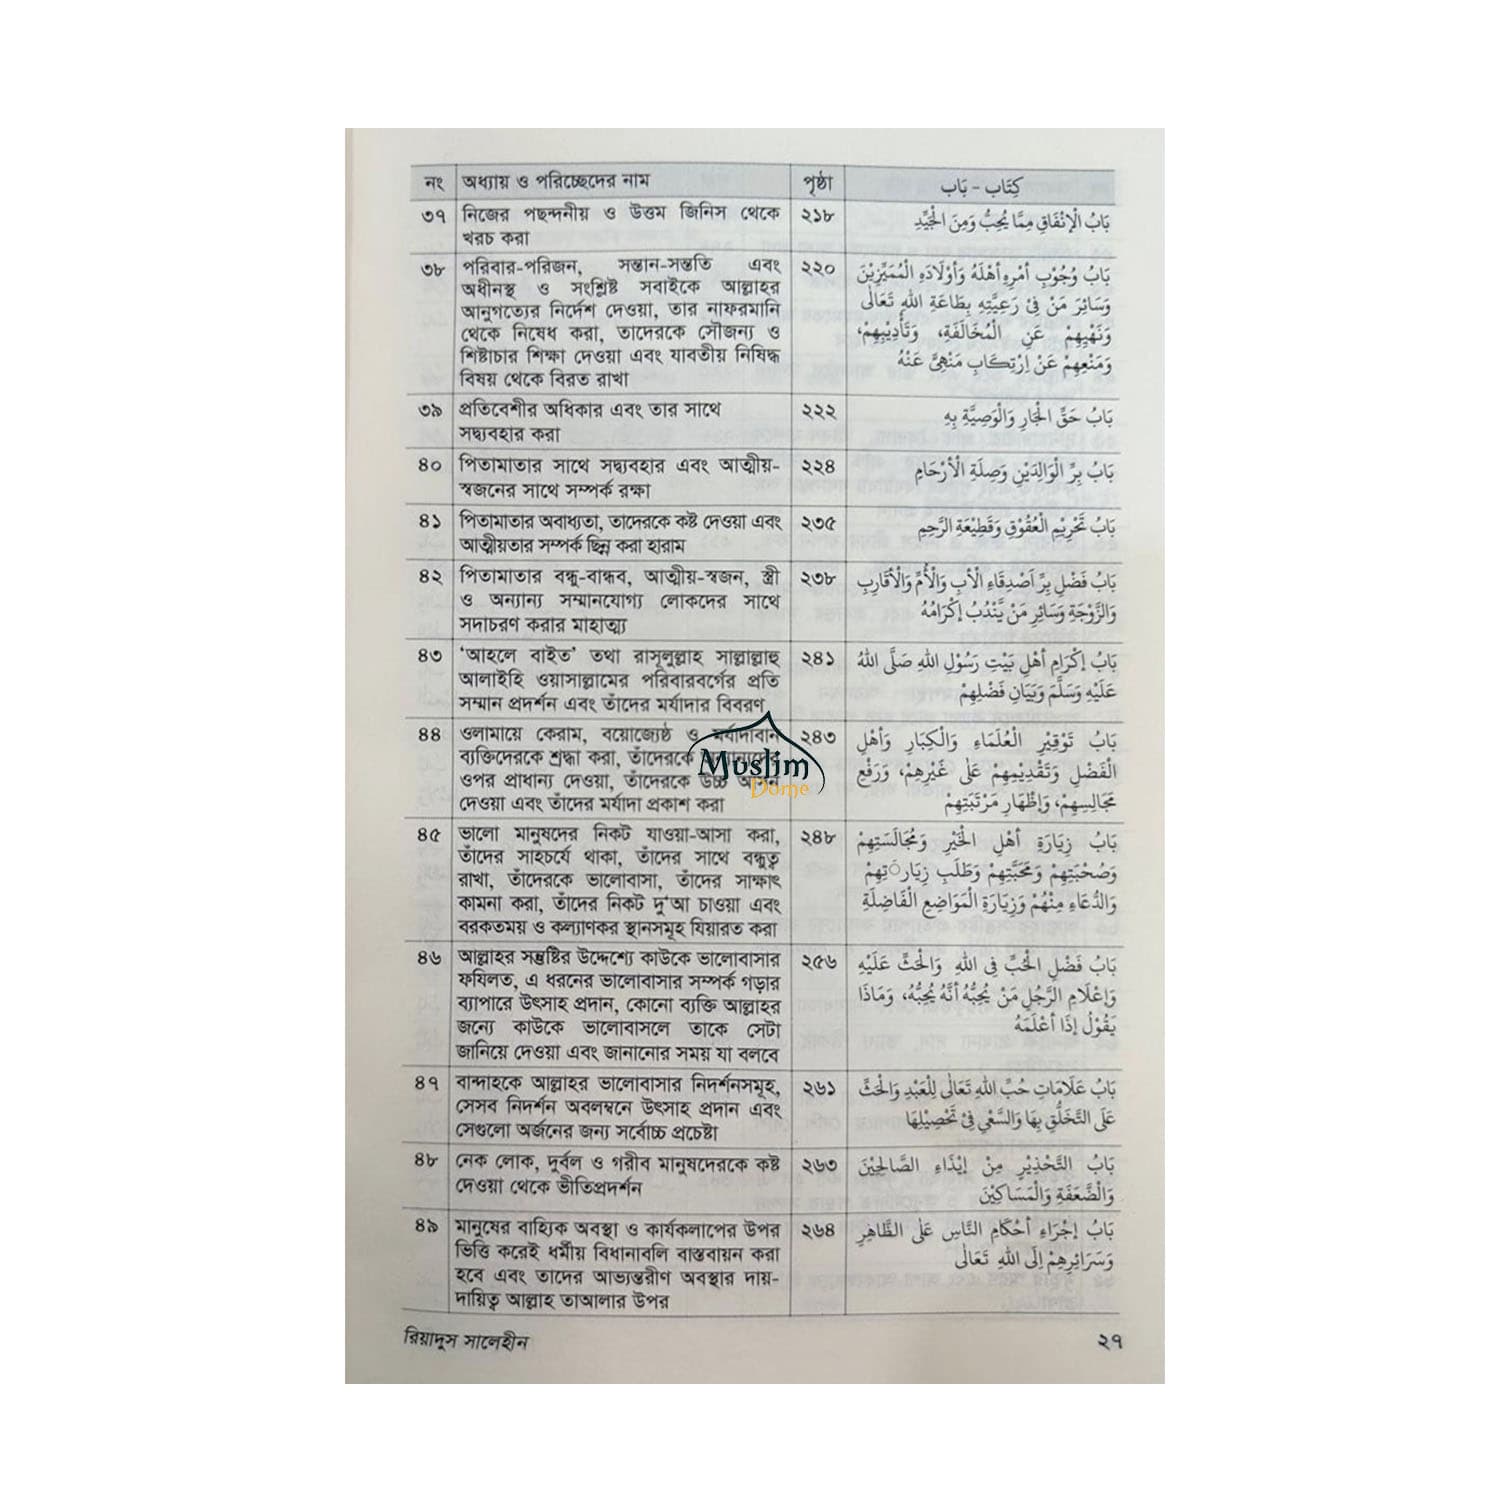 নং অধ্যায় ও পরিচ্ছেদের নাম পৃষ্ঠা كِتَاب - بَاب
৩৭ নিজের পছন্দনীয় ও উত্তম জিনিস থেকে ২১৮ بَابُ الْإِنْفَاقِ مِمَّا يُحِبُّ وَمِنَ الْجَيِّدِ
খরচ করা
৩৮ পরিবার-পরিজন, সন্তান-সন্ততি এবং ২২০ بَابُ وُجُوْبِ أَمْرِهِ أَهْلَهُ وَأَوْلَادَهِ الْمُمَيِّزِيْنَ
অধীনস্থ ও সংশ্লিষ্ট সবাইকে আল্লাহর
وَسَائِرَ مَنْ فِيْ رَعِيَّتِهِ بِطَاعَةِ اللهِ تَعَالٰى
আনুগত্যের নির্দেশ দেওয়া, তার নাফরমানি
থেকে নিষেধ করা, তাদেরকে সৌজন্য ও
وَنَهْيِهِمْ عَنِ الْمُخَالَفَةِ، وَتَأْدِيْبِهِمْ،
শিষ্টাচার শিক্ষা দেওয়া এবং যাবতীয় নিষিদ্ধ
وَمَنْعِهِمْ عَنْ اِرْتِكَابِ مَنْهِيٍّ عَنْهُ
বিষয় থেকে বিরত রাখা
৩৯ প্রতিবেশীর অধিকার এবং তার সাথে ২২২ بَابُ حَقِّ الْجَارِ وَالْوَصِيَّةِ بِهِ
সদ্ব্যবহার করা
৪০ পিতামাতার সাথে সদ্ব্যবহার এবং আত্মীয়- ২২৪ بَابُ بِرِّ الْوَالِدَيْنِ وَصِلَةِ الْأَرْحَامِ
স্বজনের সাথে সম্পর্ক রক্ষা
৪১ পিতামাতার অবাধ্যতা, তাদেরকে কষ্ট দেওয়া এবং ২৩৫ بَابُ تَحْرِيْمِ الْعُقُوْقِ وَقَطِيْعَةِ الرَّحِمِ
আত্মীয়তার সম্পর্ক ছিন্ন করা হারাম
৪২ পিতামাতার বন্ধু-বান্ধব, আত্মীয়-স্বজন, স্ত্রী ২৩৮ بَابُ فَضْلِ بِرِّ اَصْدِقَاءِ الْأَبِ وَالْأُمِّ وَالْأَقَارِبِ
ও অন্যান্য সম্মানযোগ্য লোকদের সাথে
وَالزَّوْجَةِ وَسَائِرِ مَنْ يَّنْدُبُ إِكْرَامُهُ
সদাচরণ করার মাহাত্ম্য
৪৩ ‘আহলে বাইত’ তথা রাসূলুল্লাহ সাল্লাল্লাহু ২৪১ بَابُ إِكْرَامِ أَهْلِ بَيْتِ رَسُوْلِ اللهِ صَلَّى اللهُ
আলাইহি ওয়াসাল্লামের পরিবারবর্গের প্রতি
عَلَيْهِ وَسَلَّمَ وَبَيَانِ فَضْلِهِمْ
সম্মান প্রদর্শন এবং তাঁদের মর্যাদার বিবরণ
৪৪ ওলামায়ে কেরাম, বয়োজ্যেষ্ঠ ও মর্যাদাবান ২৪৩ بَابُ تَوْقِيْرِ الْعُلَمَاءِ وَالْكِبَارِ وَأَهْلِ
ব্যক্তিদেরকে শ্রদ্ধা করা, তাঁদেরকে অন্যান্যদের
الْفَضْلِ وَتَقْدِيْمِهِمْ عَلٰى غَيْرِهِمْ، وَرَفْعِ
ওপর প্রাধান্য দেওয়া, তাঁদেরকে উচ্চ আসন
দেওয়া এবং তাঁদের মর্যাদা প্রকাশ করা
مَجَالِسِهِمْ، وَإِظْهَارِ مَرْتَبَتِهِمْ
Muslim
Dome
৪৫ ভালো মানুষদের নিকট যাওয়া-আসা করা, ২৪৮ بَابُ زِيَارَةِ أَهْلِ الْخَيْرِ وَمُجَالَسَتِهِمْ
তাঁদের সাহচর্যে থাকা, তাঁদের সাথে বন্ধুত্ব
وَصُحْبَتِهِمْ وَمَحَبَّتِهِمْ وَطَلَبِ زِيَارَتِهِمْ
রাখা, তাঁদেরকে ভালোবাসা, তাঁদের সাক্ষাৎ
কামনা করা, তাঁদের নিকট দু‘আ চাওয়া এবং
وَالدُّعَاءِ مِنْهُمْ وَزِيَارَةِ الْمَوَاضِعِ الْفَاضِلَةِ
বরকতময় ও কল্যাণকর স্থানসমূহ যিয়ারত করা
৪৬ আল্লাহর সন্তুষ্টির উদ্দেশ্যে কাউকে ভালোবাসার ২৫৬ بَابُ فَضْلِ الْحُبِّ فِى اللهِ وَالْحَثِّ عَلَيْهِ
ফযিলত, এ ধরনের ভালোবাসার সম্পর্ক গড়ার
وَإِعْلَامِ الرَّجُلِ مَنْ يُحِبُّهُ أَنَّهُ يُحِبُّهُ، وَمَاذَا
ব্যাপারে উৎসাহ প্রদান, কোনো ব্যক্তি আল্লাহর
জন্যে কাউকে ভালোবাসলে তাকে সেটা
يَقُوْلُ إِذَا أَعْلَمَهُ
জানিয়ে দেওয়া এবং জানানোর সময় যা বলবে
৪৭ বান্দাহকে আল্লাহর ভালোবাসার নিদর্শনসমূহ, ২৬১ بَابُ عَلَامَاتِ حُبِّ اللهِ تَعَالٰى لِلْعَبْدِ وَالْحَثِّ
সেসব নিদর্শন অবলম্বনে উৎসাহ প্রদান এবং
عَلَى التَّخَلُّقِ بِهَا وَالسَّعْيِ فِيْ تَحْصِيْلِهَا
সেগুলো অর্জনের জন্য সর্বোচ্চ প্রচেষ্টা
৪৮ নেক লোক, দুর্বল ও গরীব মানুষদেরকে কষ্ট ২৬৩ بَابُ التَّحْذِيْرِ مِنْ إِيْذَاءِ الصَّالِحِيْنَ
দেওয়া থেকে ভীতিপ্রদর্শন
وَالضَّعَفَةِ وَالْمَسَاكِيْنَ
৪৯ মানুষের বাহ্যিক অবস্থা ও কার্যকলাপের উপর ২৬৪ بَابُ إِجْرَاءِ أَحْكَامِ النَّاسِ عَلَى الظَّاهِرِ
ভিত্তি করেই ধর্মীয় বিধানাবলি বাস্তবায়ন করা
وَسَرَائِرِهِمْ إِلَى اللهِ تَعَالٰى
হবে এবং তাদের আভ্যন্তরীণ অবস্থার দায়-
দায়িত্ব আল্লাহ তাআলার উপর
রিয়াদুস সালেহীন ২৭